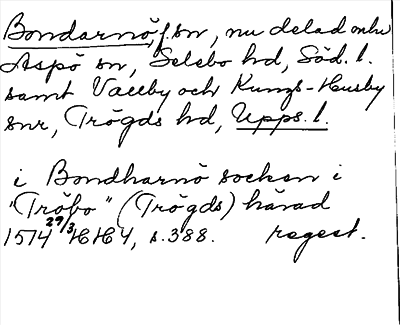 Bondarnö, f. sn, nu delad mlu
Aspö sn, Selebo hd, Söd. l.
samt Vallby och Kungs-Husby
snr, Trögds hd, Upps. l.
i Bondharnö socken i
"Tröbo" (Trögds) härad
1514 29/3 HH 4, s. 388. regest.